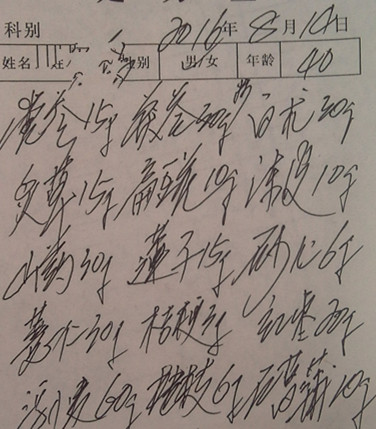 科别 2016年8月14日
姓名 性别 男/女 年龄 40
党参15g 茯苓30g 白术30g
炙草15g 扁豆10g 陈皮10g
山药30g 莲子15g 砂仁6g
薏仁30g 桔梗 g 30g
浮小麦60g 桂枝6g 石菖蒲10g